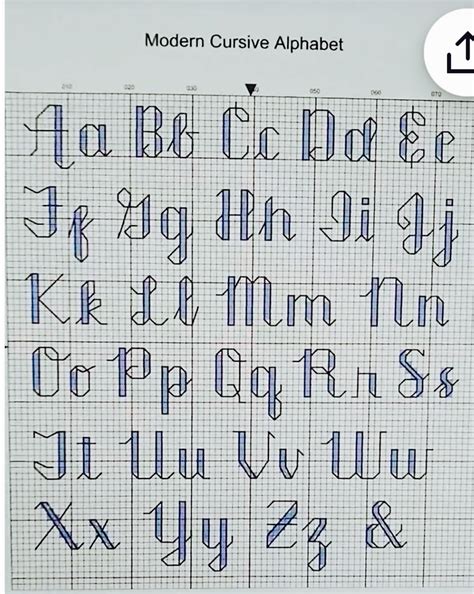 Modern Cursive Alphabet
010 020 030 050 060 070
Aa Bb Cc Dd Ee
Ff Gg Hh Ii Jj
Kk Ll Mm Nn
Oo Pp Qq Rr Ss
Tt Uu Vv Ww
Xx Yy Zz &